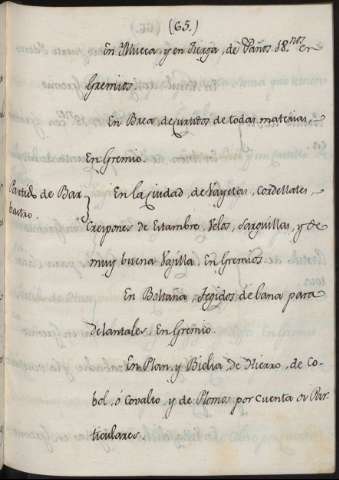 (65.)
En Illueca, y en Tierga, de Paños 18.nos en
Gremios.
En Brea, de curtidos de todas materias,
En Gremio.
Partido de Bar
bastro.
En la Ciudad, de Vayetas, Cordellates,
Crespones de Estambre, Velos, Sarguillas, y de
muy buena Vajilla, En Gremios.
En Boltaña, Tegidos de lana para
Delantales, En Gremio.
En Plan, y Bielsa, de Hierro, de Co-
bol, ó Covalto, y de Plomo, por cuenta de Par
ticulares.